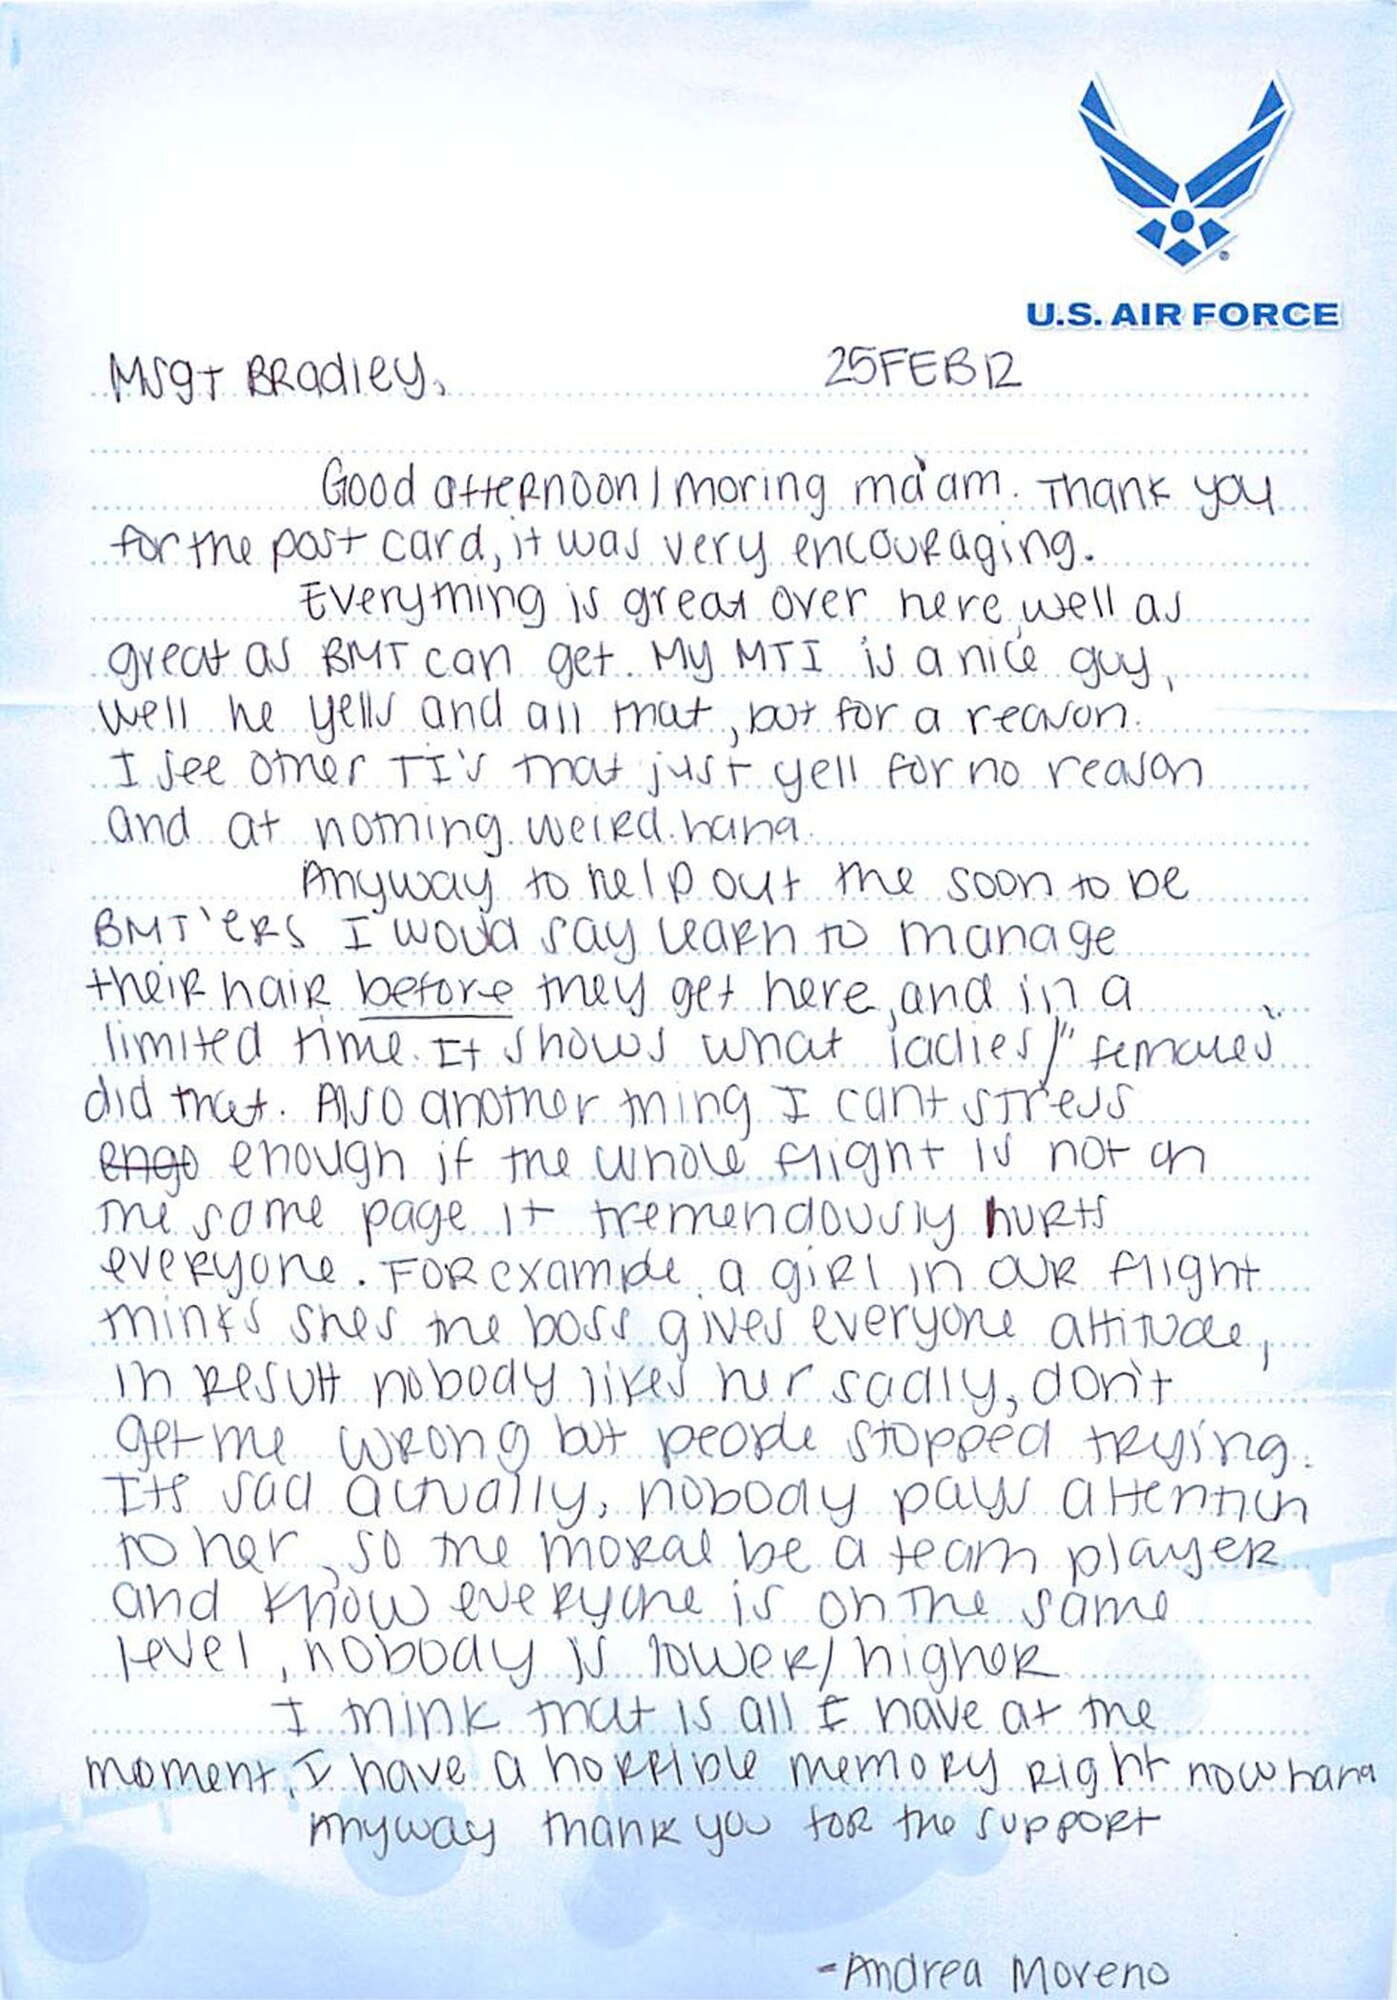 U.S. AIR FORCE
MSgt Bradley, 25FEB12
Good afternoon/moring ma'am. Thank you
for the post card, it was very encouraging.
Everything is great over here, well as
great as BMT can get. My MTI is a nice guy,
well he yells and all that, but for a reason.
I see other TI's that just yell for no reason
and at nothing. weird. haha.
Anyway to help out the soon to be
BMT'ers I would say learn to manage
their hair before they get here, and in a
limited time. It shows what ladies/"females"
did that. Also another thing I cant stress
engo enough if the whole flight is not on
the same page it tremendously hurts
everyone. For example, a girl in our flight
thinks shes the boss gives everyone attitude,
in result nobody likes her sadly, don't
get me wrong but people stopped trying.
Its sad actually, nobody pays attention
to her, so the moral be a team player
and know everyone is on the same
level, nobody is lower/higher
I think that is all I have at the
moment, I have a horrible memory right now haha
Anyway thank you for the support
-Andrea Moreno